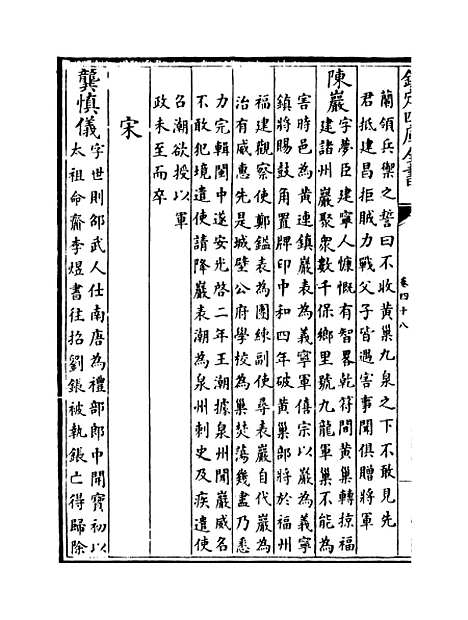 欽定四庫全書
卷四十八
蘭領兵禦之誓曰不收黃巢九泉之下不敢見先
君抵建昌拒賊力戰父子皆遇害事聞俱贈將軍
陳巖字夢臣建寧人慷慨有智畧乾符間黃巢轉掠福
建諸州巖聚衆數千保鄉里號九龍軍巢不能為
害時邑為黃連鎮巖表為義寧軍僖宗以巖為義寧
鎮將賜鼓角置牌印中和四年破黃巢部將於福州
福建觀察使鄭鎰表為團練副使尋表巖自代巖為
治有威惠先是城壁公府學校為巢焚蕩幾盡乃悉
力完輯閩中遂安光啓二年王潮據泉州聞巖威名
不敢犯境遣使請降巖表潮為泉州刺史及疾遣使
召潮欲授以軍
政未至而卒
宋
龔慎儀字世則邵武人仕南唐為禮部郎中開寶初以
太祖命齎李煜書往招劉鋹被執鋹亡得歸除